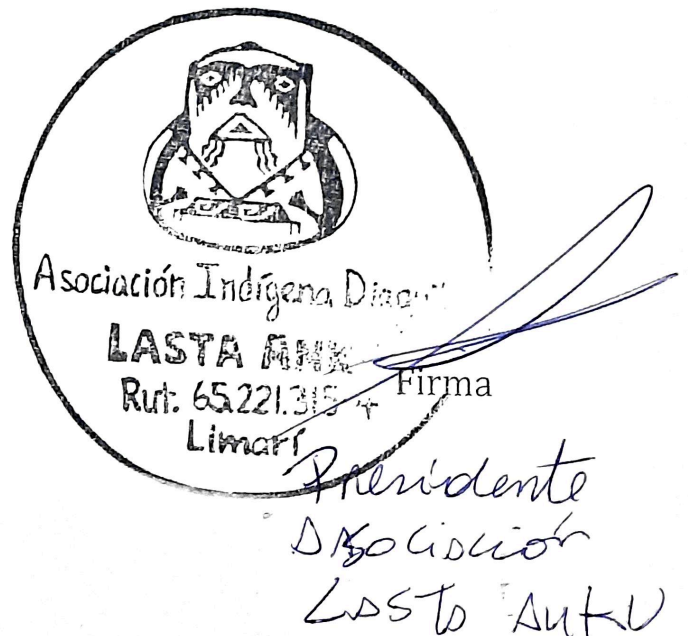 Asociación Indígena
LASTA
Rut: 65.221.315-4
Limarí
Firma
Presidente
Asociación
Lasta Anku